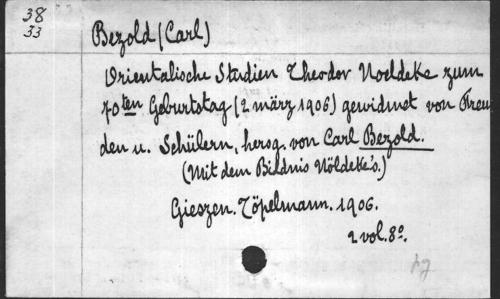 38
33
Bezold (Carl)
Orientalische Studien Theodor Noeldeke zum
70ten Geburtstag (2 märz 1906) gewidmet von Freun
den u. Schülern, hersg. von Carl Bezold.
(Mit dem Bildnis Nöldeke's.)
Gieszen. Töpelmann. 1906.
2 vol. 8°.